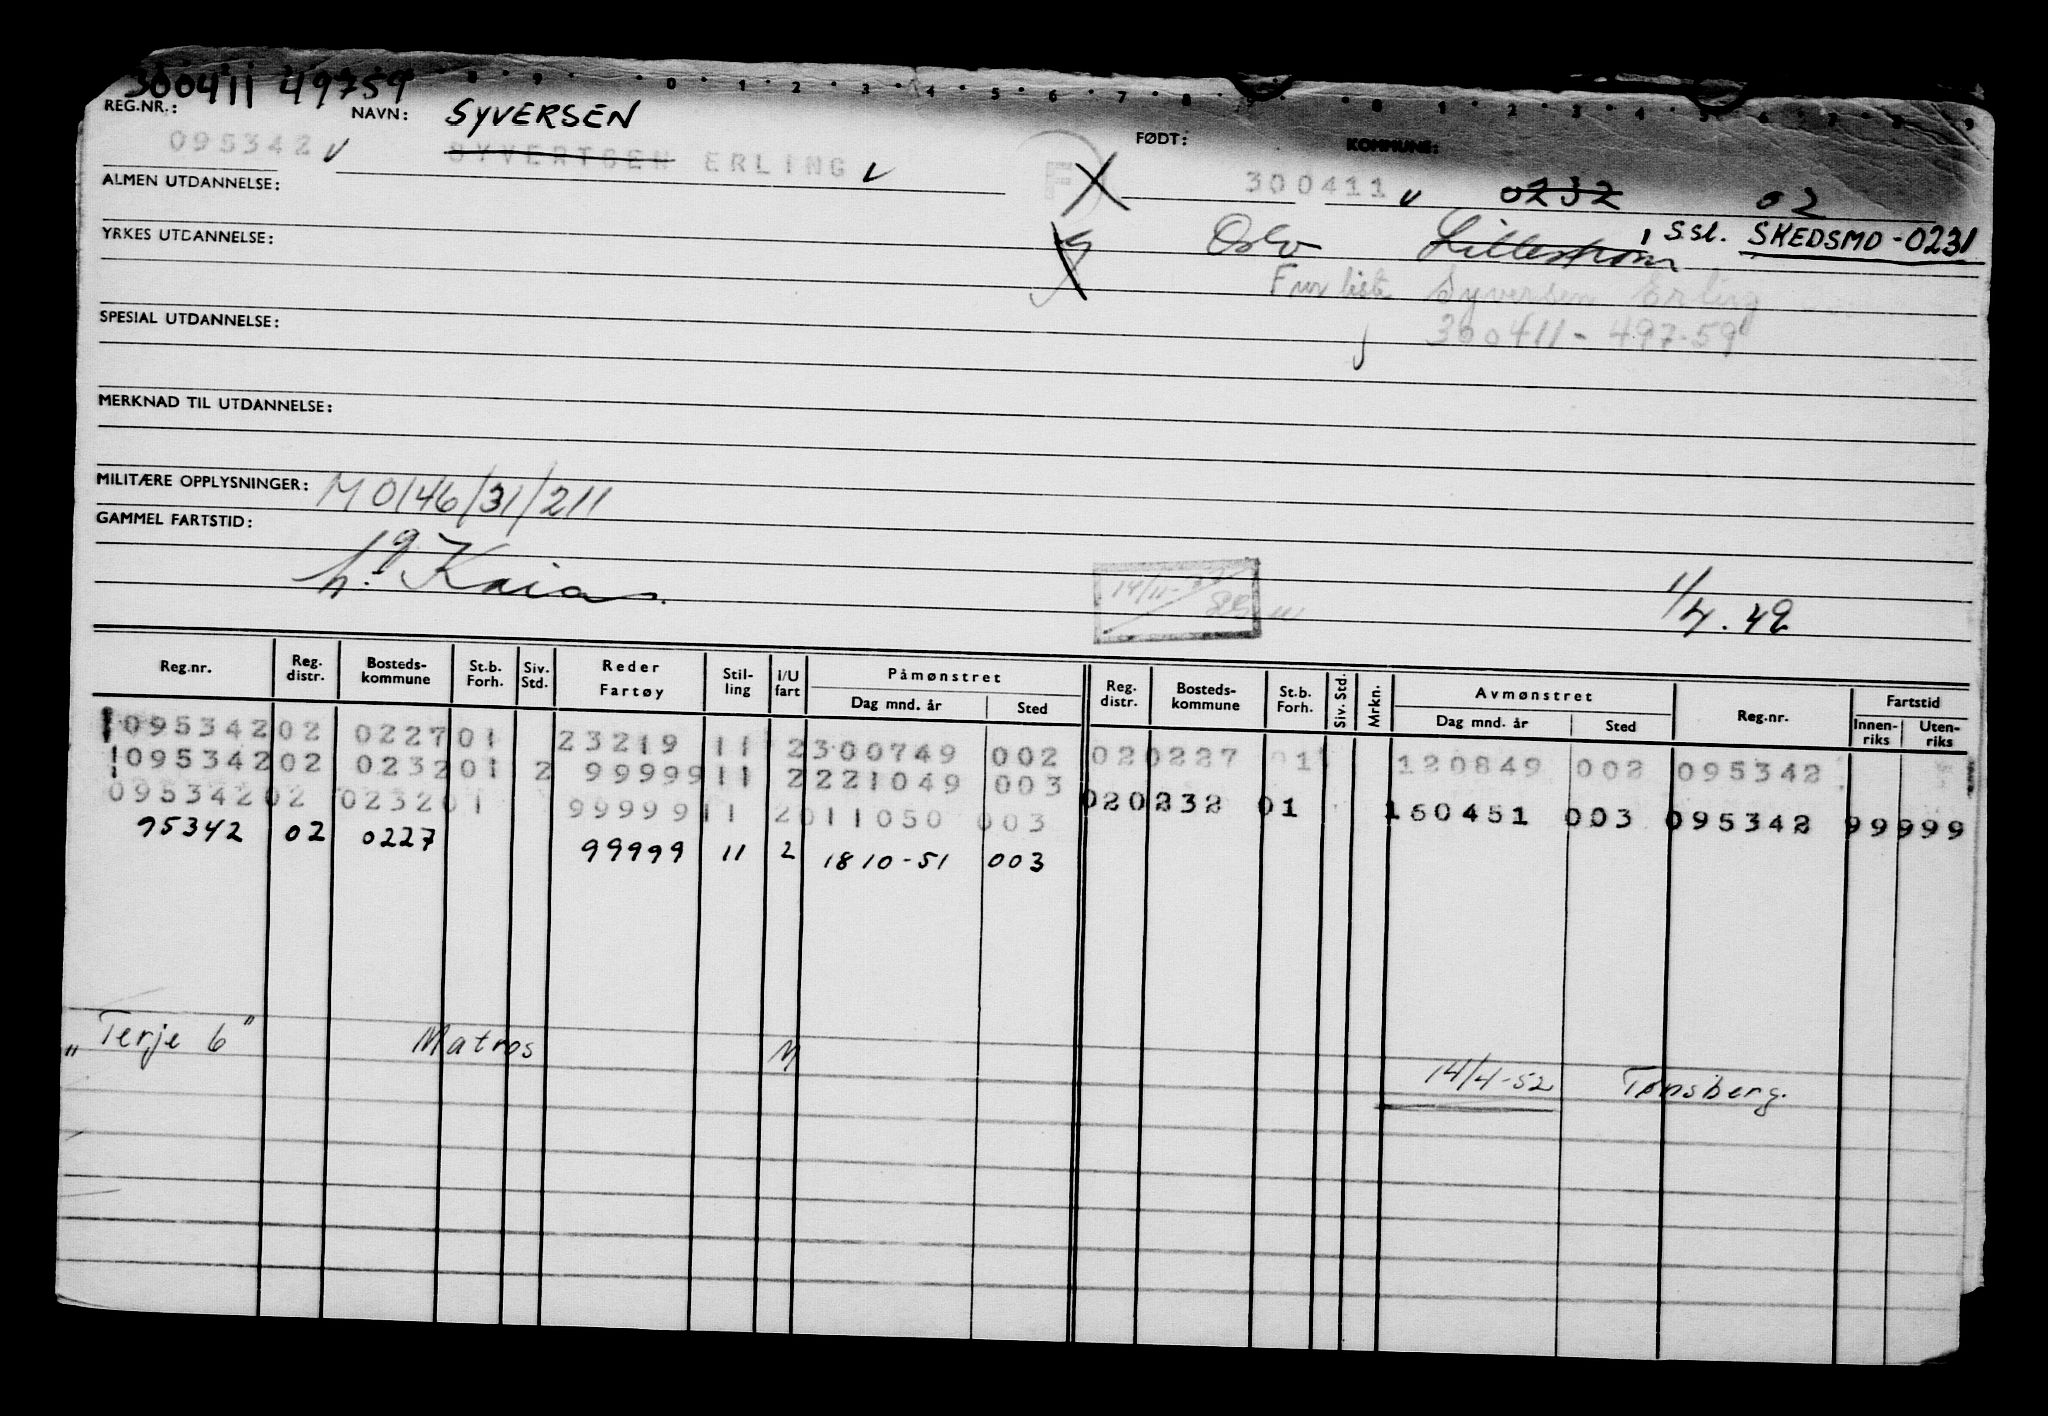 300411 49759
REG.NR.: NAVN: SYVERSEN FØDT: KOMMUNE:
095342 SYVERTSEN ERLING F 300411 0232 02
ALMEN UTDANNELSE:
YRKES UTDANNELSE: Oslo Lillestrøm, s.sl. SKEDSMO-0231
Fm liste Syversen Erling
SPESIAL UTDANNELSE: 300411-497-59
MERKNAD TIL UTDANNELSE:
MILITÆRE OPPLYSNINGER: M0146/31/211
GAMMEL FARTSTID:
Kaia 1/4.42
Reg.nr. Reg. distr. Bosteds-kommune St.b. Forh. Siv. Std. Reder Fartøy Stil-ling I/U fart Påmønstret Dag mnd. år Sted Reg. distr. Bosteds-kommune St.b. Forh. Siv. Std. Mrkn. Avmønstret Dag mnd. år Sted Reg.nr. Fartstid Innen-riks Uten-riks
095342 02 0227 01 23219 11 2 300749 002 02 0227 01 120849 002 095342
095342 02 0232 01 2 99999 11 2 221049 003
095342 02 0232 01 99999 11 2 011050 003 02 0232 01 160451 003 095342 99999
95342 02 0227 99999 11 2 1810-51 003
"Terje 6" Matros M 14/4-52 Tønsberg.